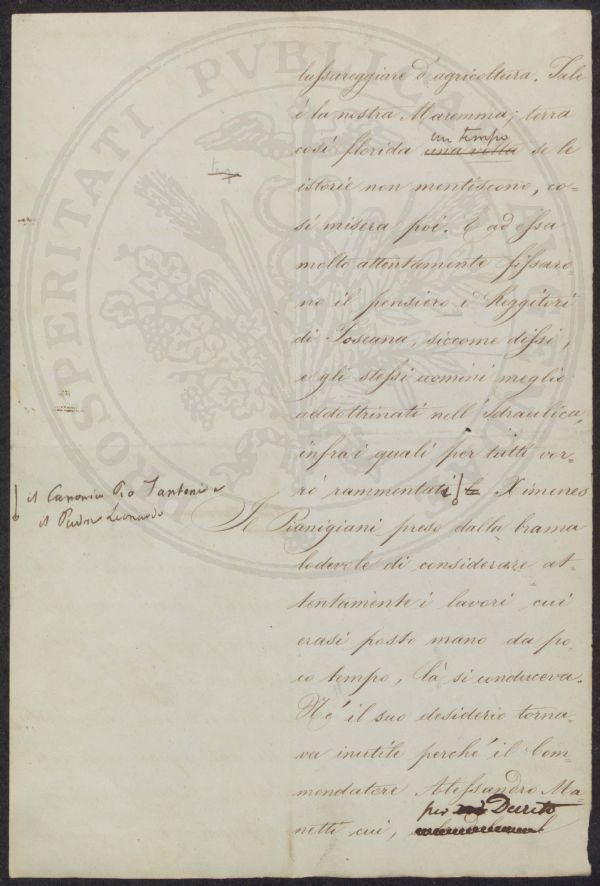 lussareggiare d'agricoltura. Tale
è la nostra Maremma; terra
un tempo
così florida una volta se le
istorie non mentiscono, co=
sì misera poi. E ad essa
molto attentamente fissaro
no il pensiero i Reggitori
di Toscana, siccome dissi,
e gli stessi uomini meglio
addottrinati nell'Idraulica,
infra i quali per tutti vor=
rò rammentati Ximenes
il Canonico Pio Fantoni e
il Padre Leonardo
Il Pianigiani preso dalla brama
lodevole di considerare at=
tentamente i lavori cui
erasi posto mano da po=
co tempo, là si conduceva.
Nè il suo desiderio torna=
va inutile perchè il Com=
mendatore Alessandro Ma=
per Decreto
netti cui,
PROSPERITATI PVBLICAE